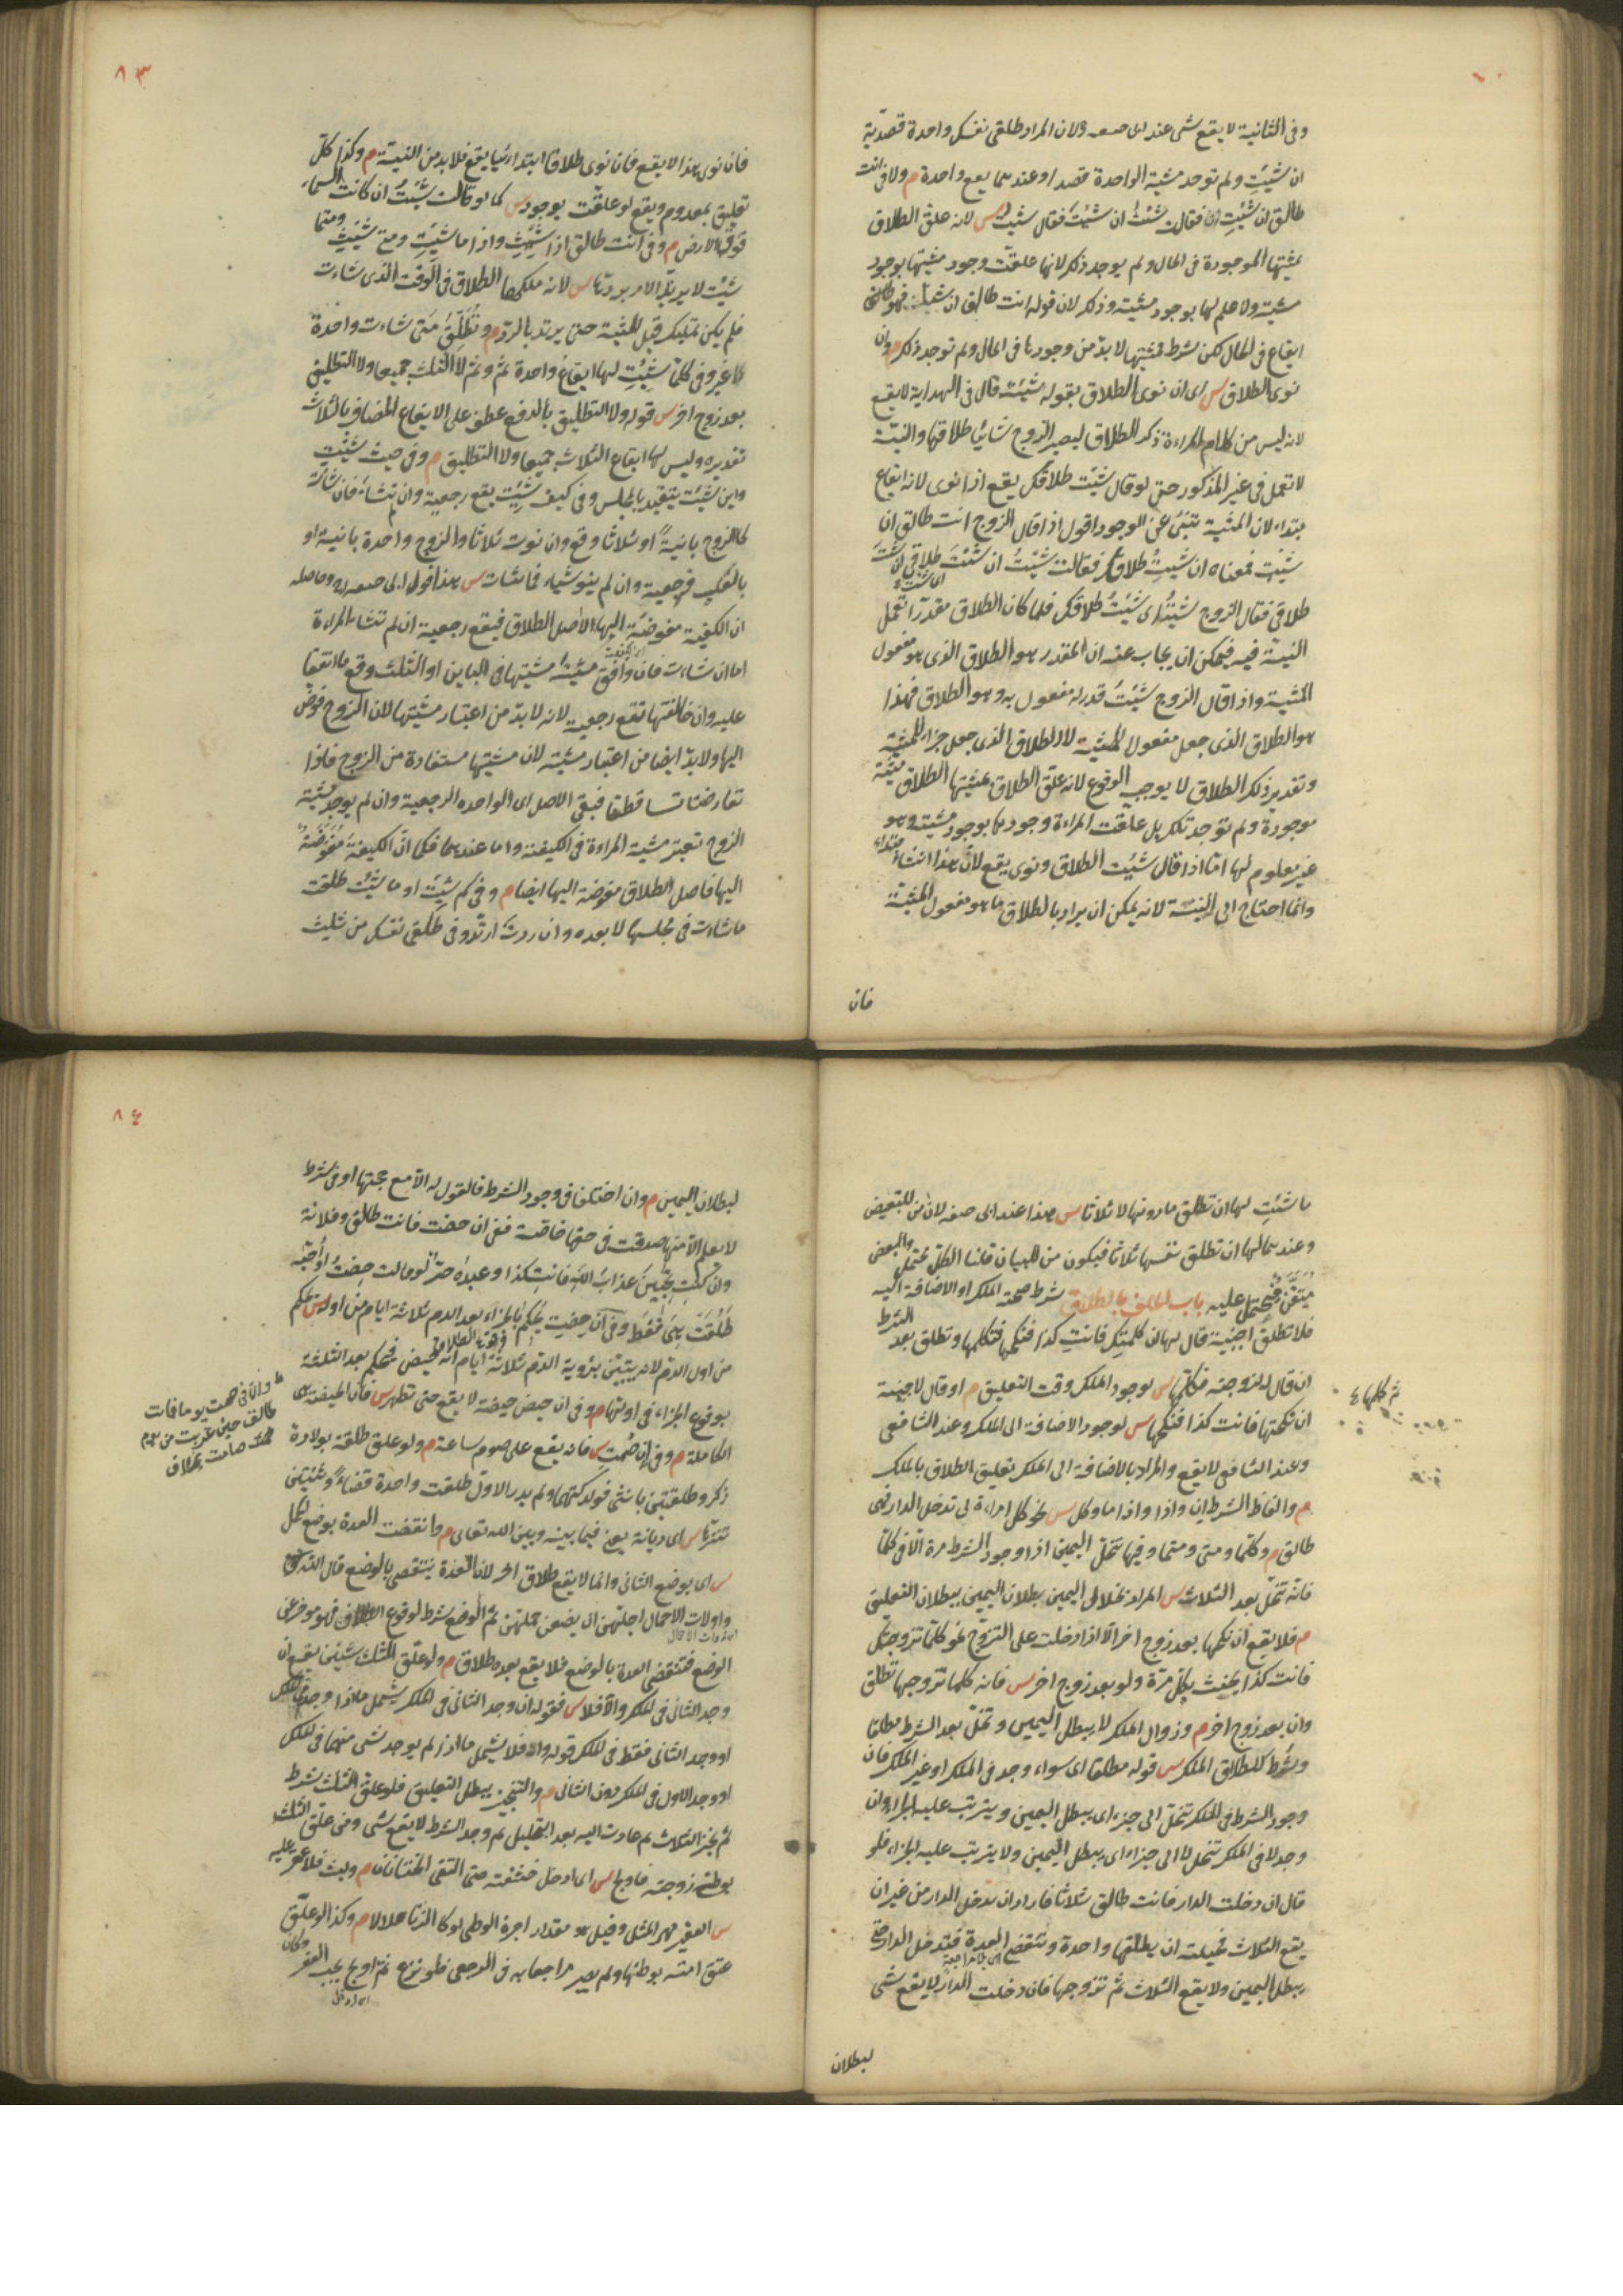 وفى الثانية لا يقع شى عند ابى حنيفه ولان المراد طلقى نفسك واحدة قصدية
ان شيتِ ولم توجد مشية الواحدة قصدا وعندهما يقع واحدة م ولا فى انت
طالق ان شيتِ فقالت شئتُ ان شئتَ فقال شيت س لانه علق الطلاق
بمشيتها الموجودة فى الحال ولم يوجد ذلك لانها علقت وجود مشيتها بوجود
مشيته ولا علم لها بوجود مشيته وذلك لان قوله انت طالق ان شيت
ايقاع فى الحال لكن بشرط مشيتها لا بد من وجودها فى الحال ولم توجد ذلك م وان
نوى الطلاق س اى ان نوى الطلاق بقوله شيت قال فى الهداية لا يقع
لانه ليس من كلام المراءة ذكر الطلاق ليصير الزوج شائيا طلاقها والنية
لا تعمل فى غير المذكور حتى لو قال شيت طلاقك يقع اذا نوى لانه ايقاع
مبتداء لان المشية تنبئ عن الوجود اقول اذا قال الزوج انت طالق ان
شيتِ فمعناه ان شيتِ طلاقك فقالت شيتُ ان شئتَ طلاقى اى شئتُ
طلاقى فقال الزوج شيتُ اى شئتُ طلاقك فلما كان الطلاق مقدرا تعمل
النية فيه فيمكن ان يجاب عنه ان المقدر هو الطلاق الذى هو مفعول
المشية واذا قال الزوج شيتُ قدر له مفعول به وهو الطلاق فهذا
هو الطلاق الذى جعل مفعول المشية لا الطلاق الذى جعل جزاء للمشية
وتقدير ذلك الطلاق لا يوجب الوقوع لانه علق الطلاق بمشيتها الطلاق مشية
موجودة ولم توجد تلك بل علقت المراءة وجودها بوجود مشيته وهو
غير معلوم لها امّا اذا قال شيت الطلاق ونوى يقع لانّ هذا انشاء مبتداء
وانما احتاج الى النية لانه يمكن ان يراد بالطلاق ما هو مفعول المشية
فان
٨٣
فان نوى هذا لا يقع فان نوى طلاقا ابتدائيا يقع فلا بد من النية م وكذا كل
تعليق بمعدوم ويقع لو علقت بموجود س كما لو قالت شيت ان كانت السماء
فوق الارض م وفى انت طالق اذا شيتِ واذا ما شيتِ ومتى شيتِ ومتما
شيت لا يرتد الامر بردها س لانه ملكها الطلاق فى الوقت الذى شاءت
فلم يكن تمليك قبل المشية حتى يرتد بالرد م وتطلق متى شاءت واحدة
لا غير وفى كلما شيتِ لها ايقاع واحدة ثم وثم لا الثلث جميعا ولا التطليق
بعد زوج اخر س قوله ولا التطليق بالرفع عطف على الايقاع المضاف بالثلاث
تقديره وليس لها ايقاع الثلاث جميعا ولا التطليق م وفى حيث شيتِ
واين شيت يتقيد بالمجلس وفى كيف شيتِ يقع رجعية وان لم تشاء فان شاءت
كالزوج بائنة او ثلاثا وقع وان نوت ثلاثا والزوج واحدة باينة او
بالعكس فرجعية وان لم ينو شياء فما شات س هذا قول ابى حنيفه رح وحاصله
ان الكيفية مفوضة اليها لا اصل الطلاق فيقع رجعية ان لم تشاء المراءة
اما ان شاءت فان وافق مشيته مشيتها فى الباين او الثلث وقع ما اتفقا
عليه وان خالفتها تقع رجعية لانه لا بد من اعتبار مشيتها لان الزوج فوض
اليها ولا بد ايضا من اعتبار مشيته لان مشيتها مستفادة من الزوج فاذا
تعارضتا تساقطتا فبقى الاصل اى الواحدة الرجعية وان لم يوجد مشية
الزوج تعتبر مشية المراءة فى الكيفية واما عندهما فكما ان الكيفية مفوضة
اليها فاصل الطلاق مفوضة اليها ايضا م وفى كم شيتَ او ما شيت طلقت
ما شاءت فى مجلسها لا بعده وان ردت ارتد وفى طلقى نفسك من ثلث
ما شيتِ لها ان تطلق ما دونها لا ثلاثا س هذا عند ابى حنيفه لان من للتبعيض
وعندهما لها ان تطلق نفسها ثلاثا فيكون من للبيان قلنا الكل محتمل والبعض
متيقن فيحمل عليه باب الحلف بالطلاق شرط صحة الملك او الاضافة اليه
فلا تطلق اجنبية قال لها ان كلمتك فانتِ كذا فنكحها فكلمها وتطلق بعد الشرط
ان قال لزوجته فكلمها س لوجود الملك وقت التعليق م او قال لاجنبية
ثم كلمها ٤
ان نكحتها فانت كذا فنكحها س لوجود الاضافة الى الملك وعند الشافعى
وعند الشافعى لا يقع والمراد بالاضافة الى الملك تعليق الطلاق بالملك
م والفاظ الشرط ان واذا واذا ما وكل س نحو كل امراءة لى تدخل الدار فهى
طالق م وكلما ومتى ومتما وفيها تنحل اليمين اذا وجود الشرط مرة الا فى كلما
فانه تنحل بعد الثلاث س المراد بانحلال اليمين بطلان اليمين ببطلان التعليق
م فلا يقع ان نكحها بعد زوج اخر الا اذا دخلت على التزوج نحو كلما تزوجتك
فانت كذا يحنث بكل مرّة ولو بعد زوج اخر س فانه كلما تزوجها تطلق
وان بعد زوج اخر م وزوال الملك لا يبطل اليمين وتنحل بعد الشرط مطلقا
وشرط للطلاق الملك س قوله مطلقا اى سواء وجد فى الملك او غير الملك فان
وجود الشرط فى الملك تنحل الى جزء اى يبطل اليمين ويترتب عليه الجزاء وان
وجد لا فى الملك تنحل لا الى جزاء اى يبطل اليمين ولا يترتب عليه الجزاء فلو
قال ان دخلت الدار فانت طالق ثلاثا فاراد ان تدخل الدار من غير ان
يقع الثلاث فحيلته ان يطلقها واحدة وتنقضى العدة فتدخل الدار حتى
يبطل اليمين ولا يقع الثلاث ثم تزوجها فان دخلت الدار لا يقع شى
لبطلان
٨٤
لبطلان اليمين م وان اختلفا فى وجود الشرط فالقول له الا مع حجتها او فى شرط
لا يعلم الا منها صدقت فى حقها خاصة ففى ان حضت فانت طالق وفلانة
وان كنتِ تحبّين عذاب الله فانتِ كذا وعبده حر لو قالت حضتُ او احبّه
طلقت هى فقط وفى ان حضتِ يحكم بالجزاء بعد الدم ثلاثة ايام من اوله س يحكم
من اول الدم لانه يتبين برؤية الدم ثلاثة ايام انه حيض فيحكم بعد الثلثة
بوقوع الجزاء فى اولها م وفى ان حيض حيضة لا يقع حتى تطهر س فان الحيضة هى
الكاملة م وفى ان صمت س فانه يقع على صوم ساعة م ولو علق طلقة بولادة
وان فى صمت يوما فانت
طالق حين غربت من يوم
صامت بخلاف
ذكر وطلقتين بانثى فولدتهما ولم يدر الاول طلقت واحدة قضاءً وثنتين
تنزها س اى ديانة يعنى فيما بينه وبين الله تعالى م وانقضت العدة بوضع الحمل
س اى بوضع الثانى وانما لا يقع طلاق اخر لان العدة ينقضى بالوضع قال الله تعالى
واولات الاحمال اجلهن ان يضعن حملهن ثم الوضع شرط لوقوع الطلاق فهو مؤخر عن
الوضع فتنقضى العدة بالوضع فلا يقع بعده طلاق م ولو علق الثلث بشيئين يقع ان
وجد الثانى فى الملك والا فلا س فقوله ان وجد الثانى فى الملك يشمل ما اذا وجدا فى الملك
او وجد الثانى فقط فى الملك قوله والا فلا يشمل ما اذا لم يوجد شى منهما فى الملك
او وجد الاول فى الملك دون الثانى م والتنجيز يبطل التعليق فلو علق الثلث بشرط
ثم نجز الثلاث ثم عادت اليه بعد التحليل ثم وجد الشرط لا يقع شى ومن علق الثلث
بوطى زوجته فاولج س اى ادخل حشفته حتى التقى الختانان م ولبث فلا عقر عليه
س العقر مهر المثل وقيل هو مقدار اجرة الوطى لو كان الزنا حلالا م وكذا لو علق
عتق امته بوطئها ولم يصر مراجعا به فى الرجعى فلو نزع ثم اولج يجب العقر وكان